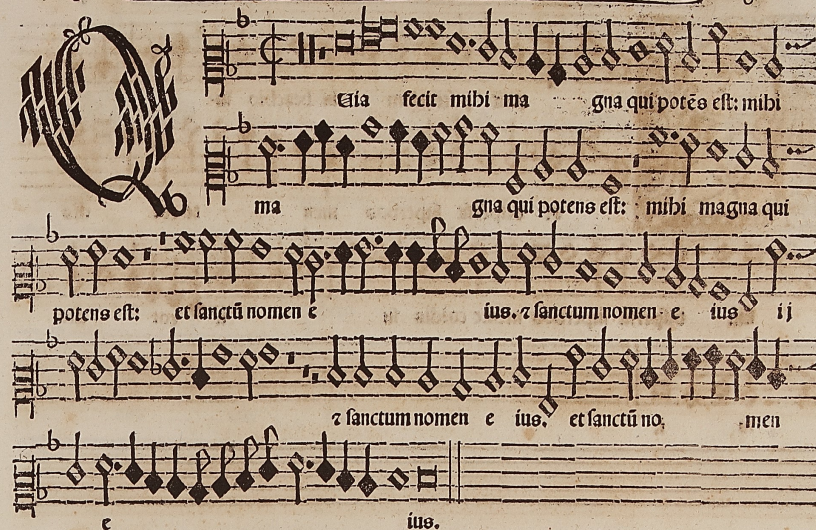 Quia fecit mihi ma gna qui potēs est: mihi
ma gna qui potens est: mihi magna qui
potens est: et sanctū nomen e ius. ⁊ sanctum nomen e ius ij
⁊ sanctum nomen e ius. et sanctū no, men
e ius.